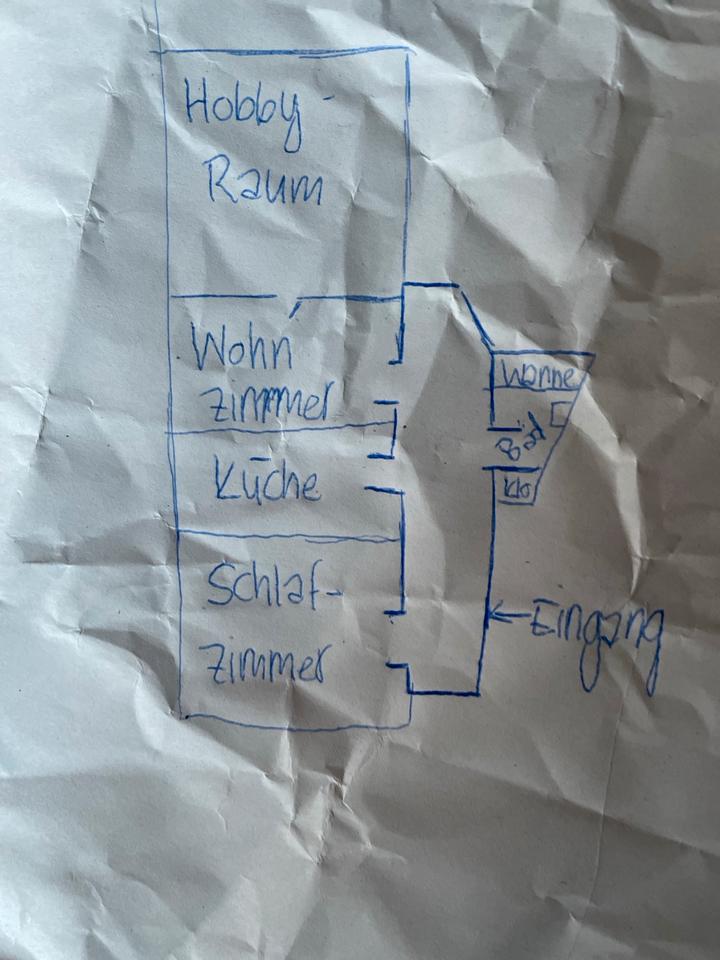 Hobby-
Raum
Wohn
zimmer
Küche
Schlaf-
zimmer
Wanne
Bad
Klo
Eingang